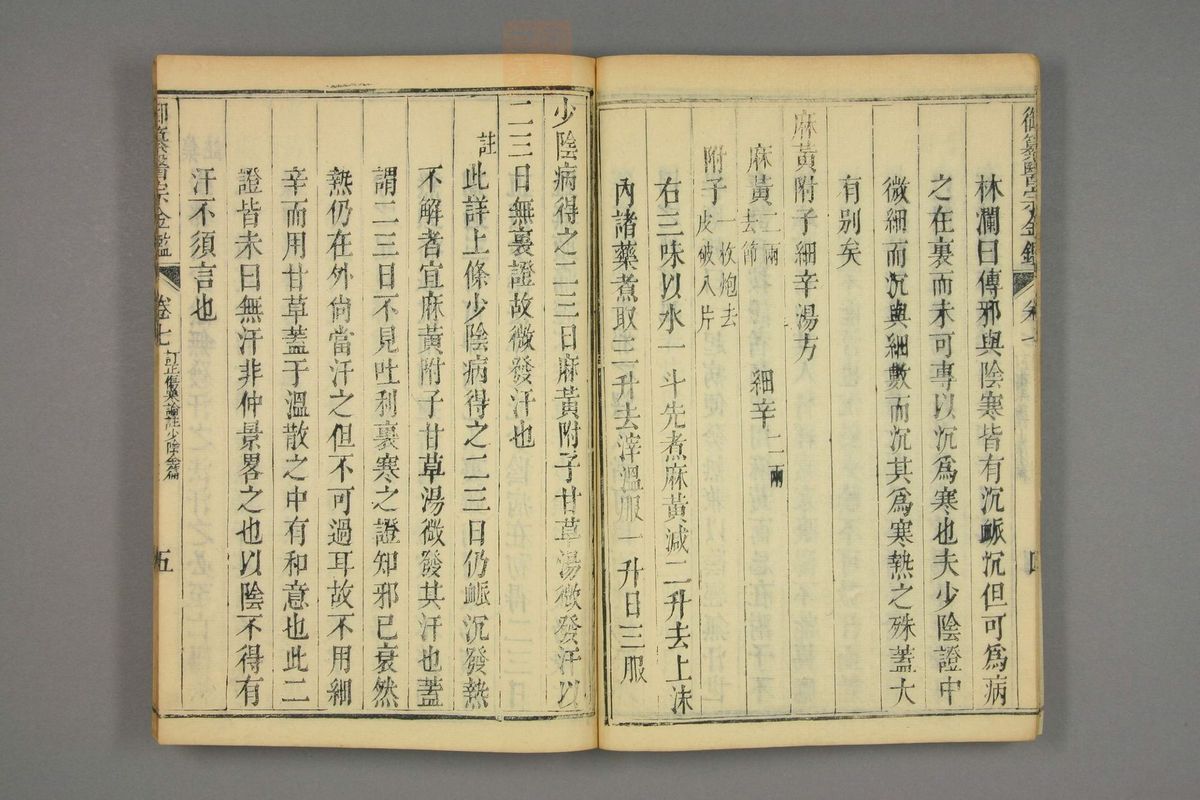 御纂醫宗金鑑
林瀾曰傳邪與陰寒皆有沉脈沉但可爲病
之在裏而未可專以沉爲寒也夫少陰證中
微細而沉與細數而沉其爲寒熱之殊蓋大
有别矣
麻黃附子細辛湯方
麻黃二兩去節 細辛二兩
附子一枚炮去皮破八片
右三味以水一斗先煮麻黃減二升去上沫
內諸藥煮取三升去滓溫服一升日三服
少陰病得之二三日麻黃附子甘草湯微發汗以
二三日無裏證故微發汗也
註 此詳上條少陰病得之二三日仍脈沉發熱
不解者宜麻黃附子甘草湯微發其汗也蓋
謂二三日不見吐利裏寒之證知邪已衰然
熱仍在外尙當汗之但不可過耳故不用細
辛而用甘草蓋于溫散之中有和意也此二
證皆未曰無汗非仲景畧之也以陰不得有
汗不須言也
御纂醫宗金鑑 卷七 訂正傷寒論註少陰全篇 五